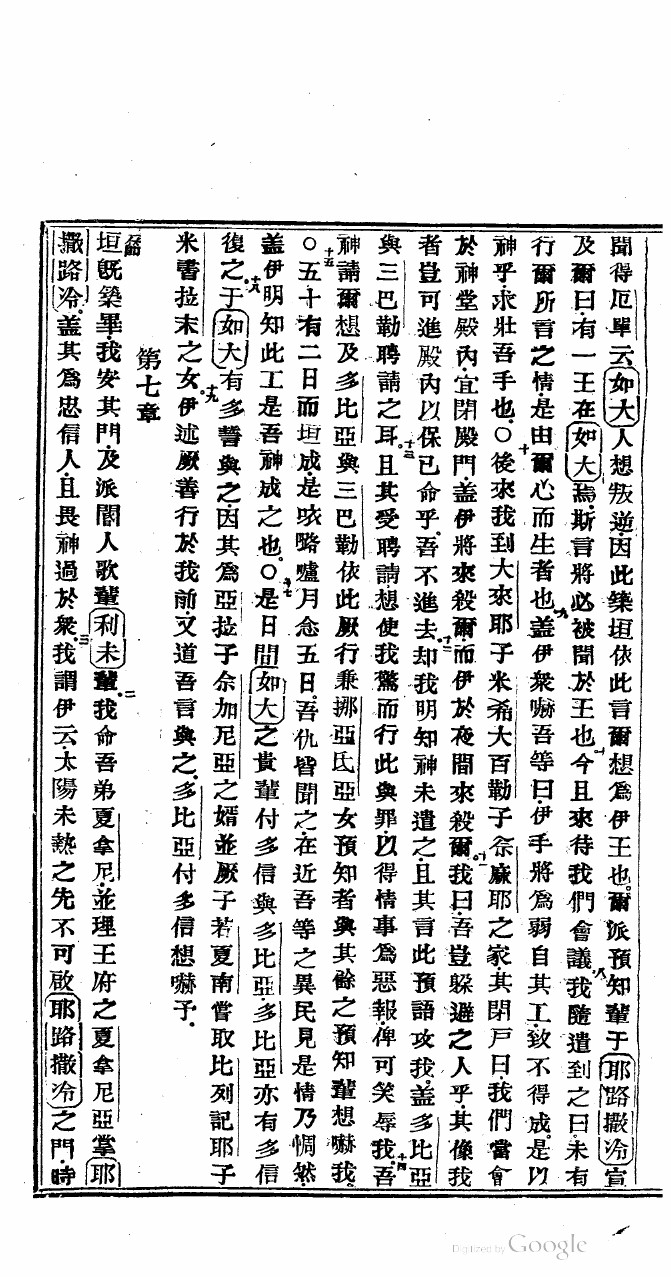 聞得厄單云如大人想叛逆因此築垣依此言爾想爲伊王也爾派預知輩于耶路撒冷宣
及爾曰有一王在如大焉斯言將必被聞於王也今且來待我們會議八我隨遣到之曰未有
行爾所言之情是由爾心而生者也九蓋伊衆嚇吾等曰伊手將爲弱自其工致不得成是以
神乎求壯吾手也〇十後來我到大來耶子米希大百勒子佘麻耶之家其閉戸曰我們當會
於神堂殿內宜閉殿門蓋伊將來殺爾而伊於夜間來殺爾十一我曰吾豈躲避之人乎其像我
者豈可進殿內以保已命乎吾不進去十二却我明知神未遣之且其言此預語攻我蓋多比亞
與三巴勒聘請之耳十三且其受聘請想使我驚而行此與罪以得情事爲惡報俾可笑辱我十四吾
神請爾想及多比亞與三巴勒依此厥行兼挪亞氐亞女預知者與其餘之預知輩想嚇我
〇十五五十有二日而垣成是咴咯嚧月念五日吾仇皆聞之在近吾等之異民見是情乃惆然
蓋伊明知此工是吾神成之也〇十七是日間如大之貴輩付多信與多比亞多比亞亦有多信
復之十八于如大有多誓與之因其爲亞拉子佘加尼亞之婿並厥子若夏南嘗取比列記耶子
米書拉末之女十九伊述厥善行於我前又道吾言與之多比亞付多信想嚇予
第七章
垣既築畢我安其門及派閽人歌輩利未輩二我命吾弟夏拿尼並理王府之夏拿尼亞掌耶
撒路冷蓋其爲忠信人且畏神過於衆三我謂伊云太陽未熱之先不可啟耶路撒冷之門時
Digitized by Google